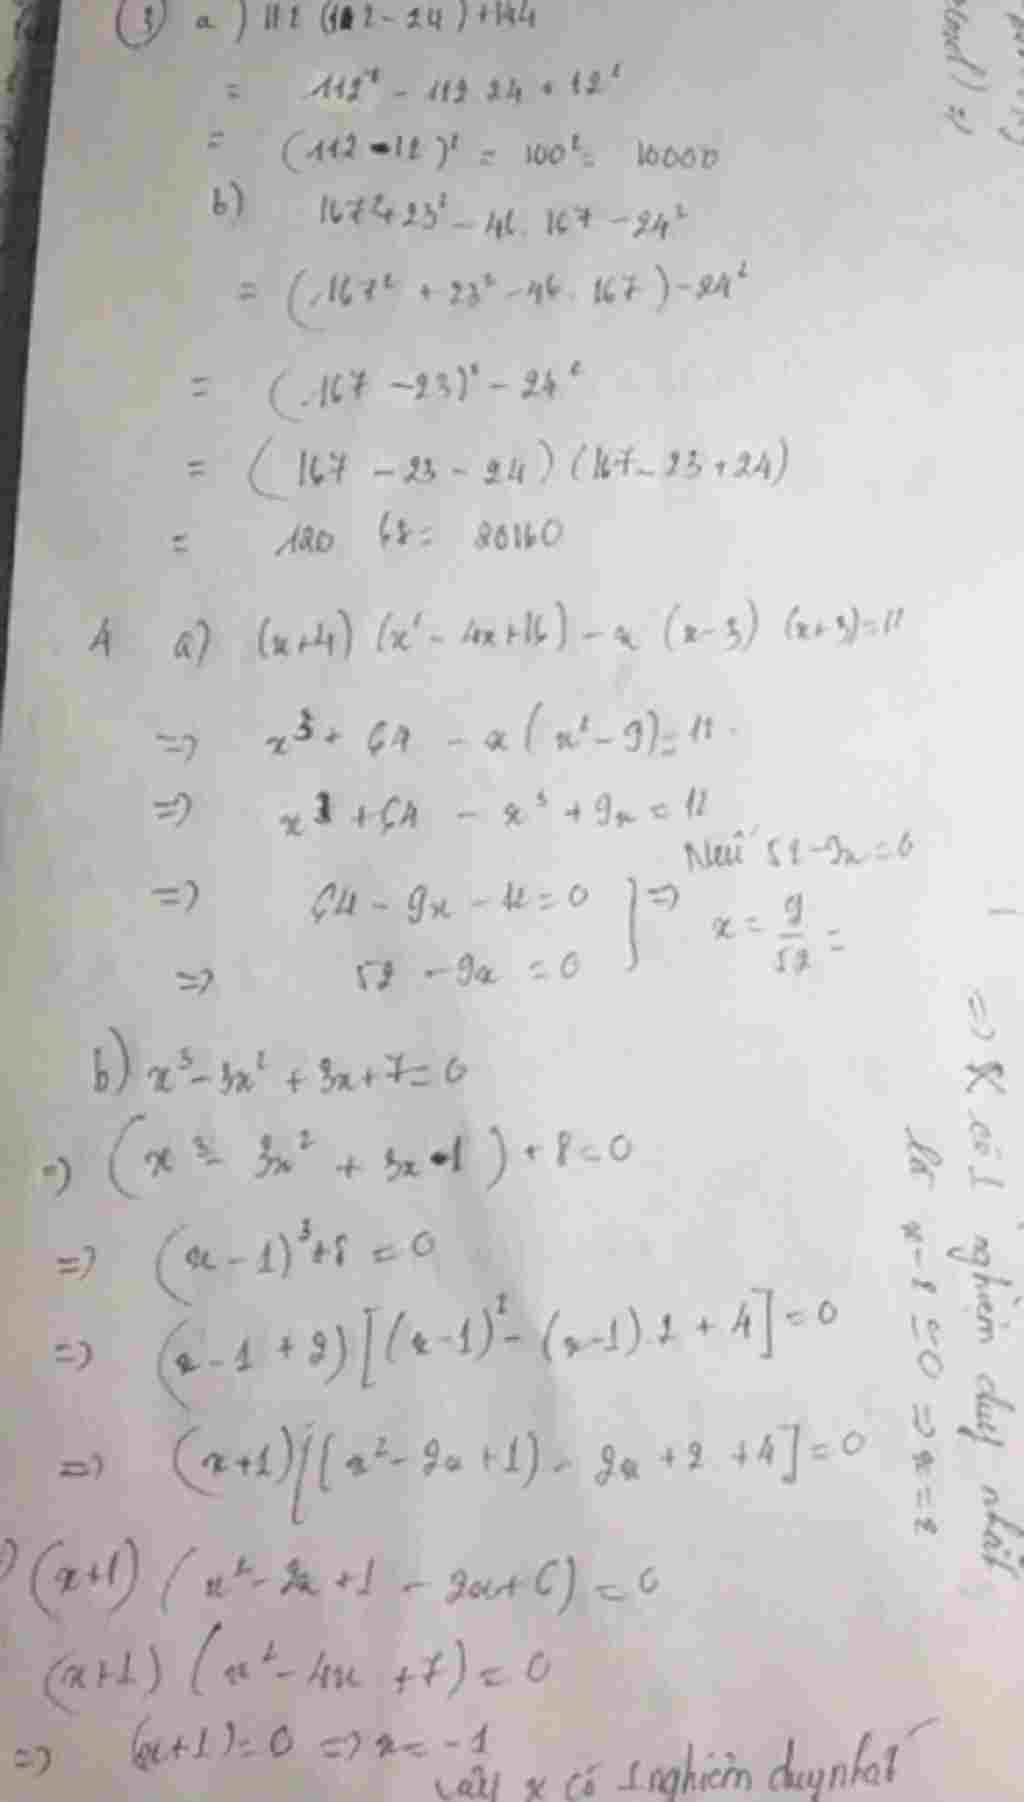 ③ a) 112 (112 - 24) + 144
= 112² - 112 24 + 12²
= (112 - 12)² = 100² = 10000
b) 167² + 23² - 46. 167 - 24²
= (167² + 23² - 46. 167) - 24²
= (167 - 23)² - 24²
= (167 - 23 - 24) (167 - 23 + 24)
= 120 68 = 20160
4 a) (x+4) (x² - 4x + 16) - x (x-3) (x+3) = 11
=> x³ + 64 - x (x² - 9) = 11.
=> x³ + 64 - x³ + 9x = 12
=> 64 - 9x - 12 = 0
=> 52 - 9x = 0
} => Nếu 52 - 9x = 0
x = 9/52 =
b) x³ - 3x² + 3x + 7 = 0
=> (x³ - 3x² + 3x - 1) + 8 = 0
=> (x - 1)³ + 8 = 0
=> (x - 1 + 2) [(x - 1)² - (x - 1) 2 + 4] = 0
=> (x+1) [(x² - 2x + 1) - 2x + 2 + 4] = 0
(x+1) (x² - 2x + 1 - 2x + 6) = 0
(x+1) (x² - 4x + 7) = 0
=> (x+1) = 0 => x = -1
Vậy x có 1 nghiệm duy nhất
=> x có 1 nghiệm duy nhất